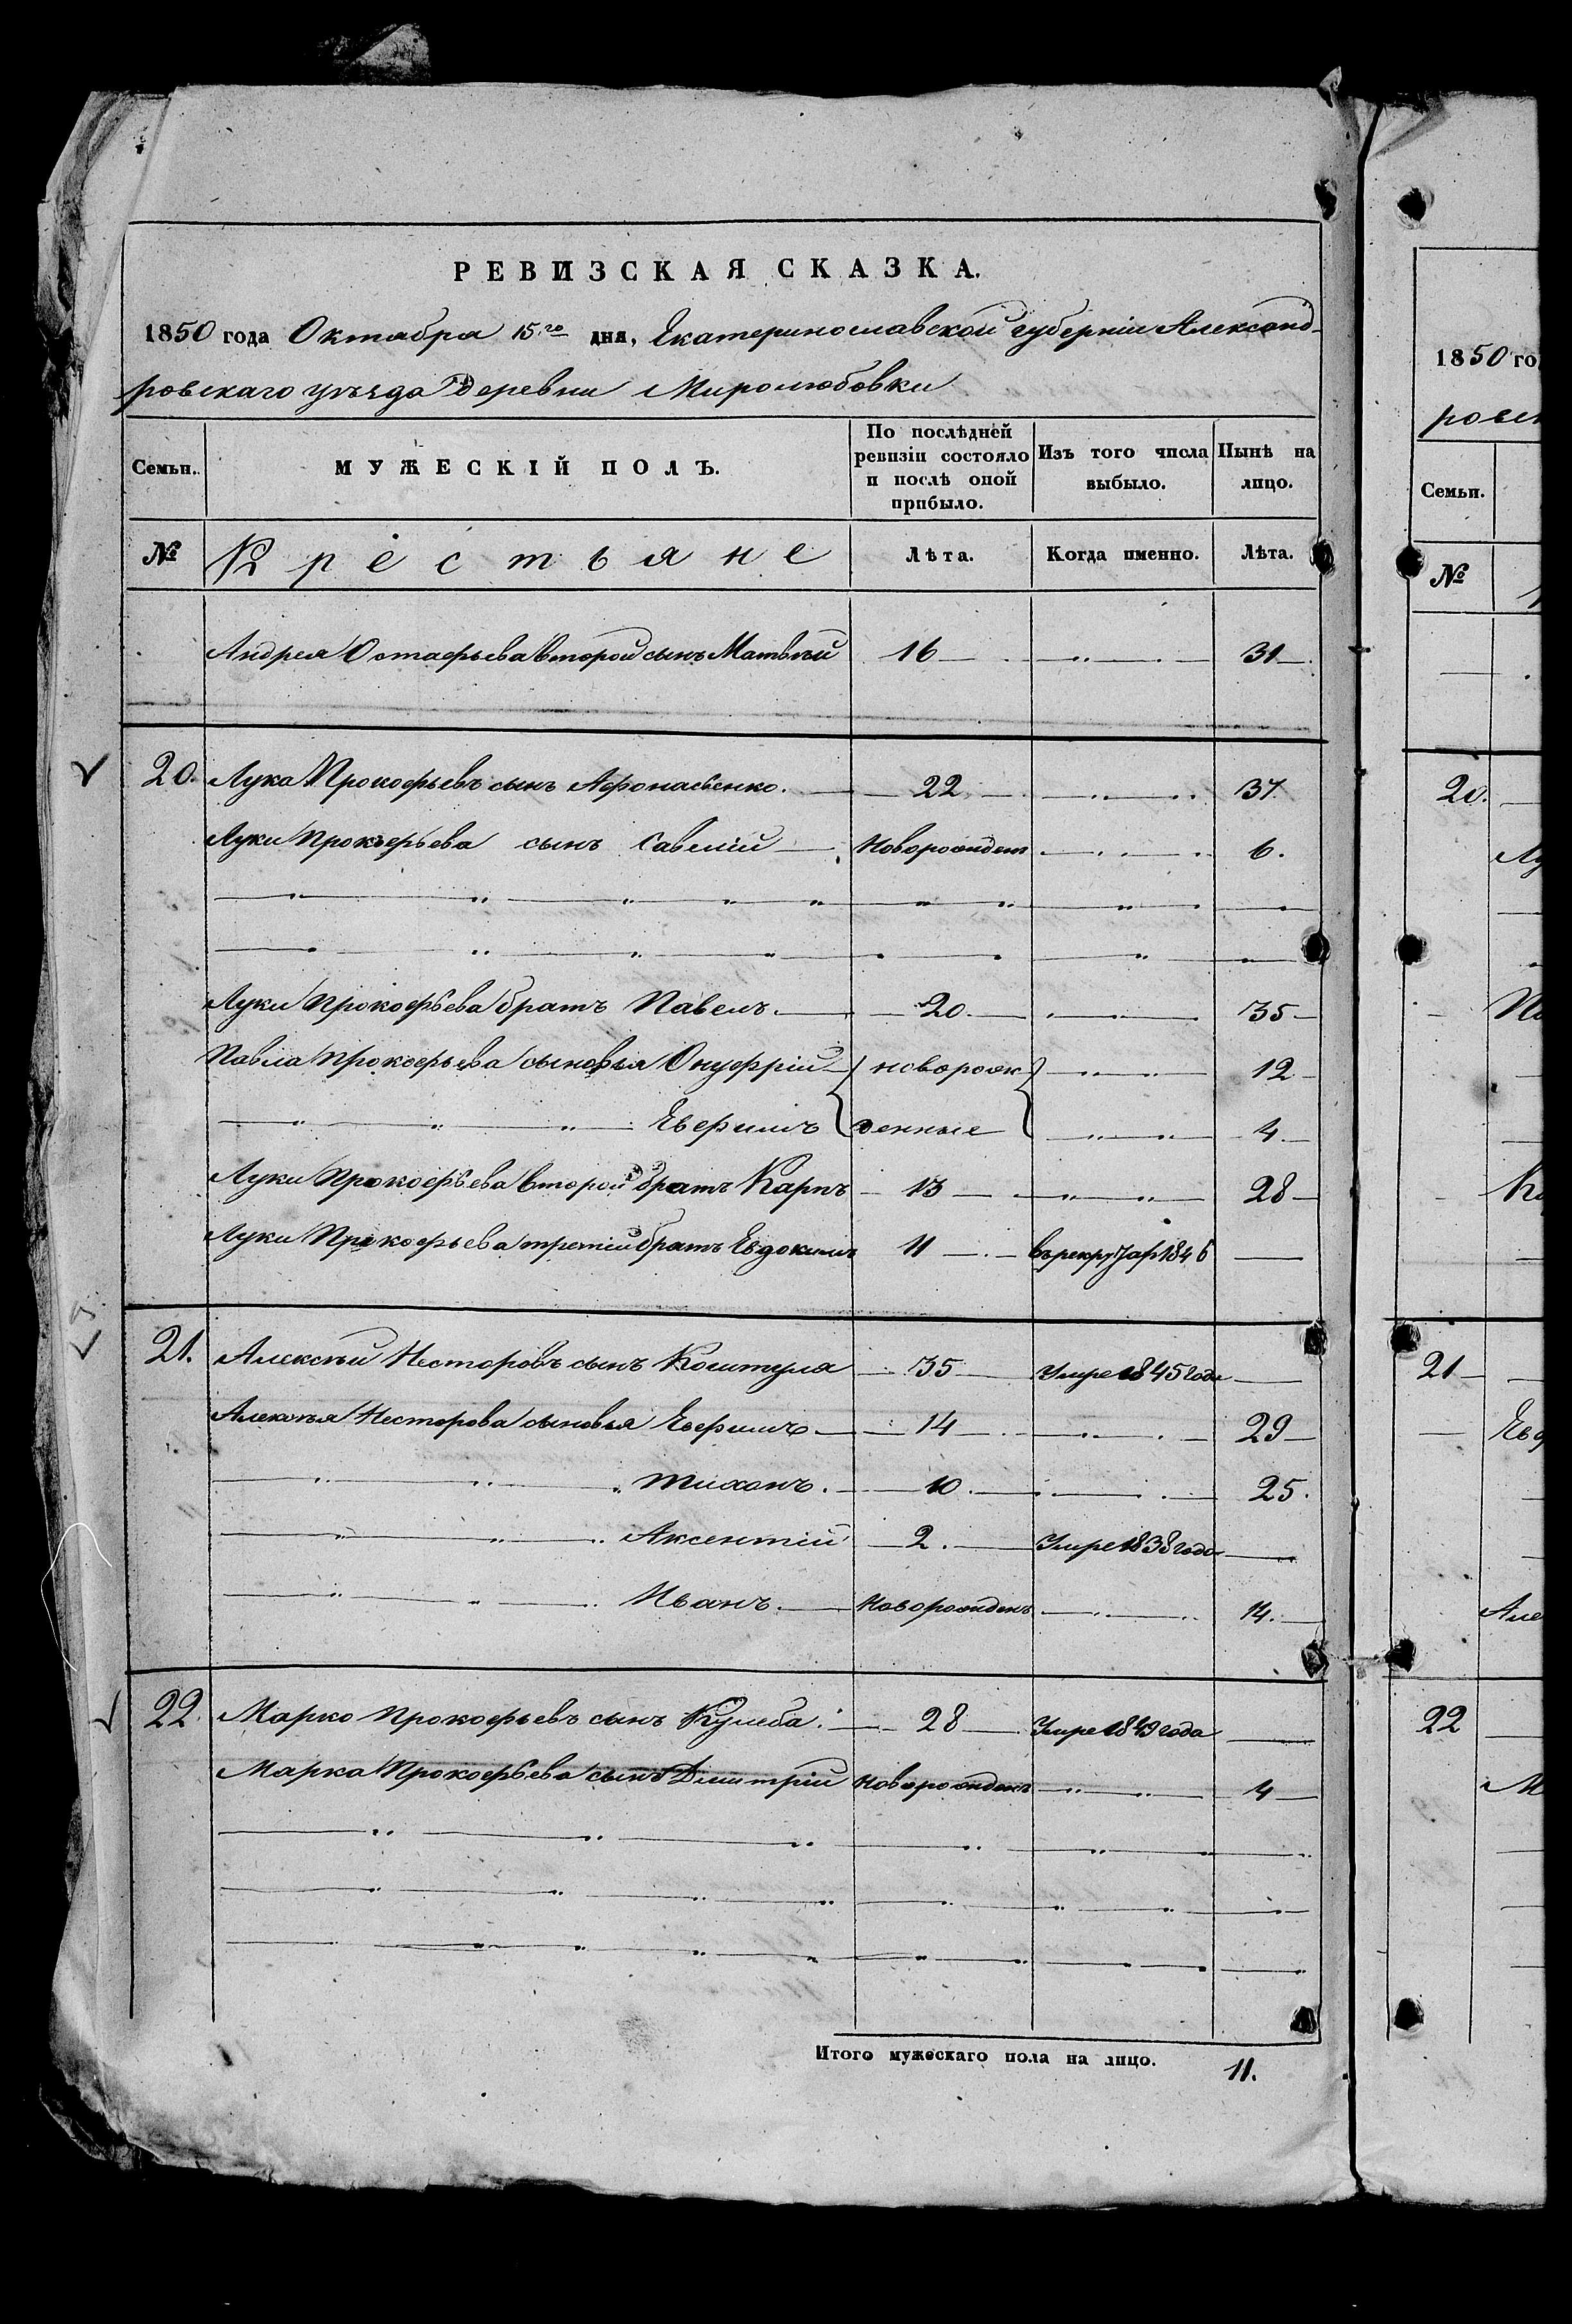 РЕВИЗСКАЯ СКАЗКА.
1850 года Октабра 15го дня, Екатеринославской губерніи Александ-
ровскаго уѣзда Деревни Миролюбовки
Семьи. МУЖЕСКІЙ ПОЛЪ. По послѣдней ревизіи состояло и послѣ оной прибыло. Изъ того числа выбыло. Нынѣ на лицо.
№ Крестьяне Лѣта. Когда именно. Лѣта.
Андрея Остафьева второй сынъ Матвѣй 16 31
20. Лука Прокофьевъ сынъ Афонасьенко. 22 37
Луки Прокофьева сынъ Савелій Новорожден 6.
Луки Прокофьева братъ Павелъ. 20. 35
Павла Прокофьева сыновья Онуфрій новорож 12
Ефимъ денные 4
Луки Прокофьева второй братъ Карпъ 13 28
Луки Прокофьева третій братъ Евдокимъ 11 въ рекру 1846
21. Алексѣй Несторовъ сынъ Коштула 35 Умре 1845 года
Алексѣя Несторова сыновья Ефимъ 14 29
Тихонъ. 10. 25.
Аксентій 2. Умре 1838 года
Иванъ. Новорожденъ 14.
22. Марко Прокофьевъ сынъ Кулеба. 28 Умре 1849 года
Марка Прокофьева сынъ Дмитрій Новорожденъ 4
Итого мужескаго пола на лицо. 11.
1850 го
ровск
Семьи.
№
20.
Лу
Па
Ка
21
Еф
Але
22
М